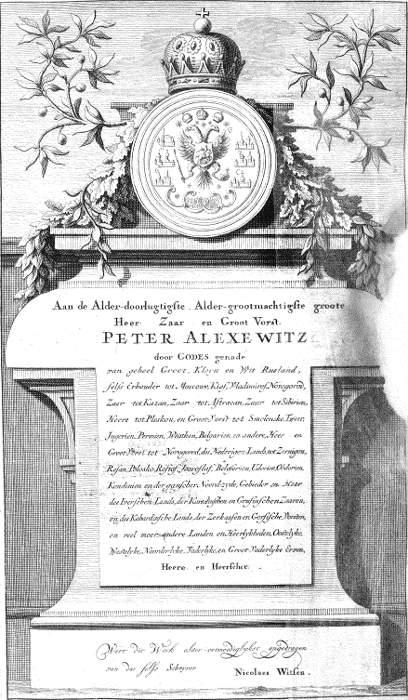 Aan de Alder-doorlugtigste, Alder-grootmachtigste groote
Heer Zaar en Groot Vorst.
PETER ALEXEWITZ
door GODES genade
van geheel Groot, Kleyn en Wit Rusland,
selfs Erhouder tot Moscouw, Kiof, Vladimirof, Novogorod,
Zaar tot Kazan, Zaar tot Astracan, Zaar tot Siberien,
Heere tot Pleskou, en Groot Vorst tot Smolenske, Tweer,
Jugorien, Permien, Wiatken, Bolgarien en andere, Heer en
Groot Vorst tot Novogorod, des Nederige Lands, tot Zernigou,
Resan, Poloske, Rostof, Jaroslaf, Beloserien, Udorien, Obdorien,
Kondinien en der ganscher Noord-zyde, Gebieder en Heer
des Iverschen Lands, der Kardalijsche en Grusinschen Zaaren,
en des Kabardinsche Lands, der Zerkassen en Gorsische Vorsten,
en veel meer andere Landen en Heerlykheden, Oostelyke,
Westelyke, Noorderlyke, Vaderlyke, en Groot Vaderlyke Erven,
Heere en Heerscher.
Wert dit Werk alder-ootmoediglykst opgedragen
van des selfs Schryver Nicolaes Witsen.